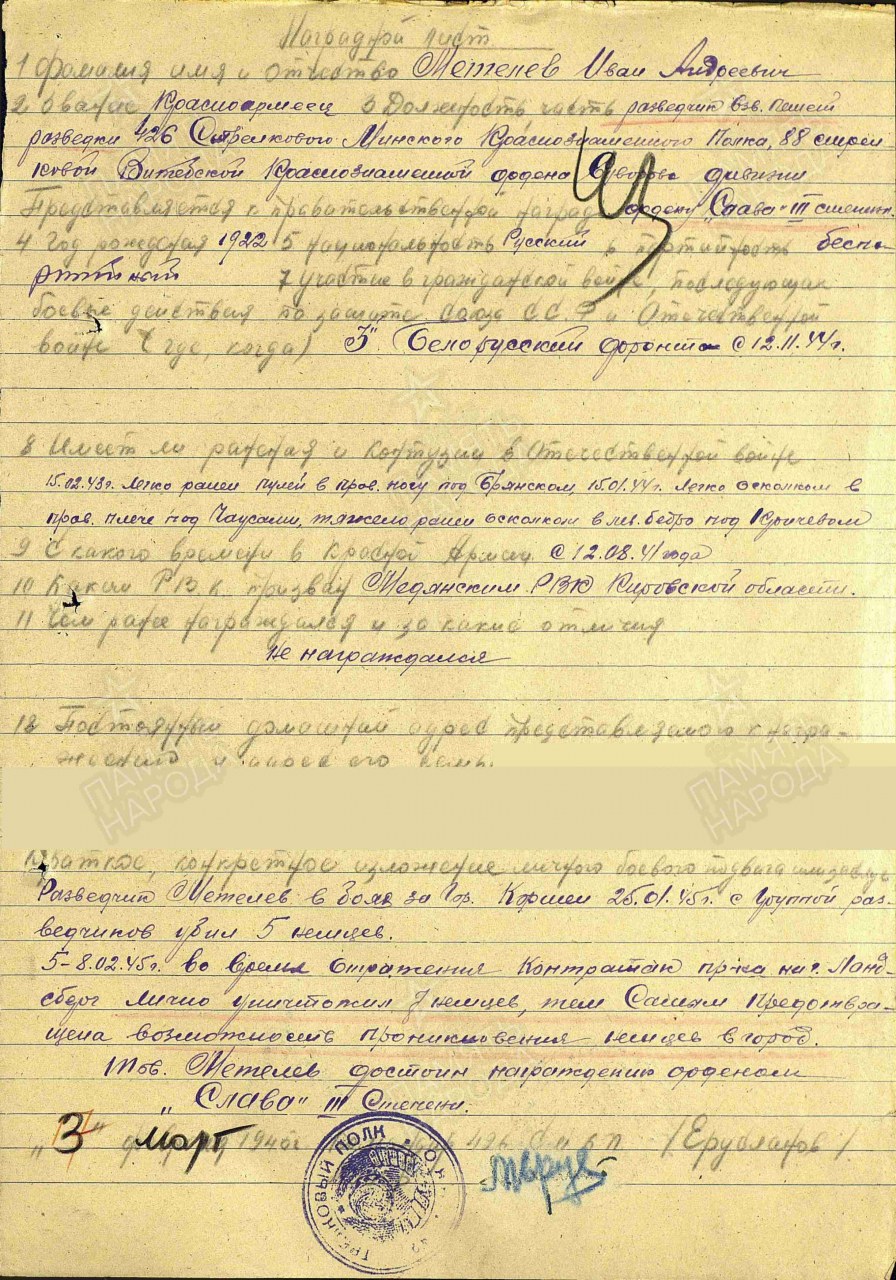 Наградной лист
1 Фамилия имя и отчество Метелев Иван Андреевич
2 Звание Красноармеец 3 Должность, часть разведчик взв. пешей
разведки 426 Стрелкового Минского Краснознаменного Полка, 88 стрел
ковой Витебской Краснознаменной ордена Суворова дивизии
Представляется к правительственной награде ордену "Слава" III степени.
4 Год рождения 1922 5 национальность Русский 6 партийность беспа-
ртийный 7 участие в гражданской войне, последующих
боевых действиях по защите Союза ССР и Отечественной
войне (где, когда) 3" Белорусский фронт с 12.11.44г.
8 Имеет ли ранения и контузии в Отечественной войне
15.02.43г. Легко ранен пулей в прав. ногу под Брянском, 15.01.44г. Легко осколком в
прав. плече под Чаусами, тяжело ранен осколком в лев. бедро под Кричевом
9 С какого времени в Красной Армии с 12.08.41 года
10 Каким РВК призван Медянским РВК Кировской области.
11 Чем ранее награждался и за какие отличия
Не награждался
Постоянный домашний адрес представляемого к награ-
ждению и адрес его семьи
Краткое, конкретное изложение личного боевого подвига или заслуг
Разведчик Метелев в боях за гор. Коршен 26.01.45г. с группой раз-
ведчиков убил 5 немцев.
5-8.02.45г. во время отражения контратак пр-ка на г. Ланд-
сберг лично уничтожил 7 немцев, тем самым предотвра-
щена возможность проникновения немцев в город.
Тов. Метелев достоин награждению орденом
"Слава" III Степени.
"3" март 1945г. /Ерусланов/.
СТРЕЛКОВЫЙ ПОЛК
ПАМЯТЬ
НАРОДА